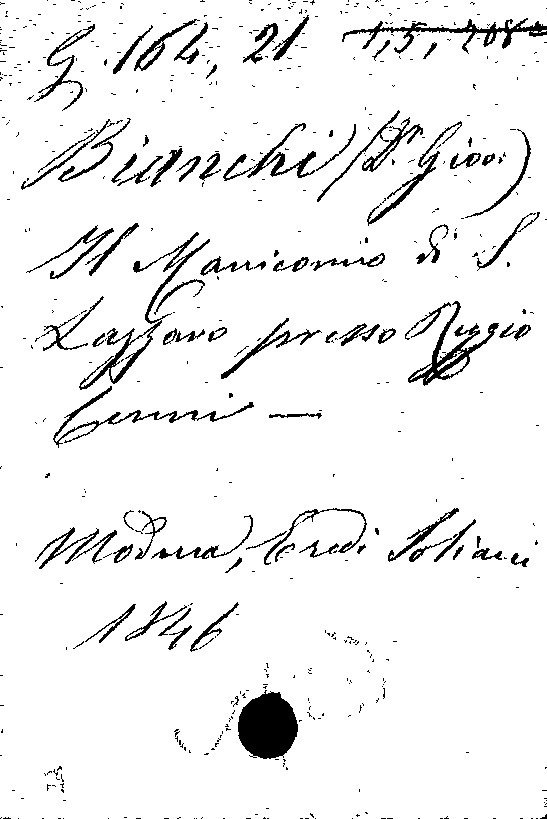 G. 164, 21 1,5, 208
Bianchi (Dr. Giov.)
Il Manicomio di S.
Lazzaro presso Reggio
Cenni —
Modena, Eredi Soliani
1846